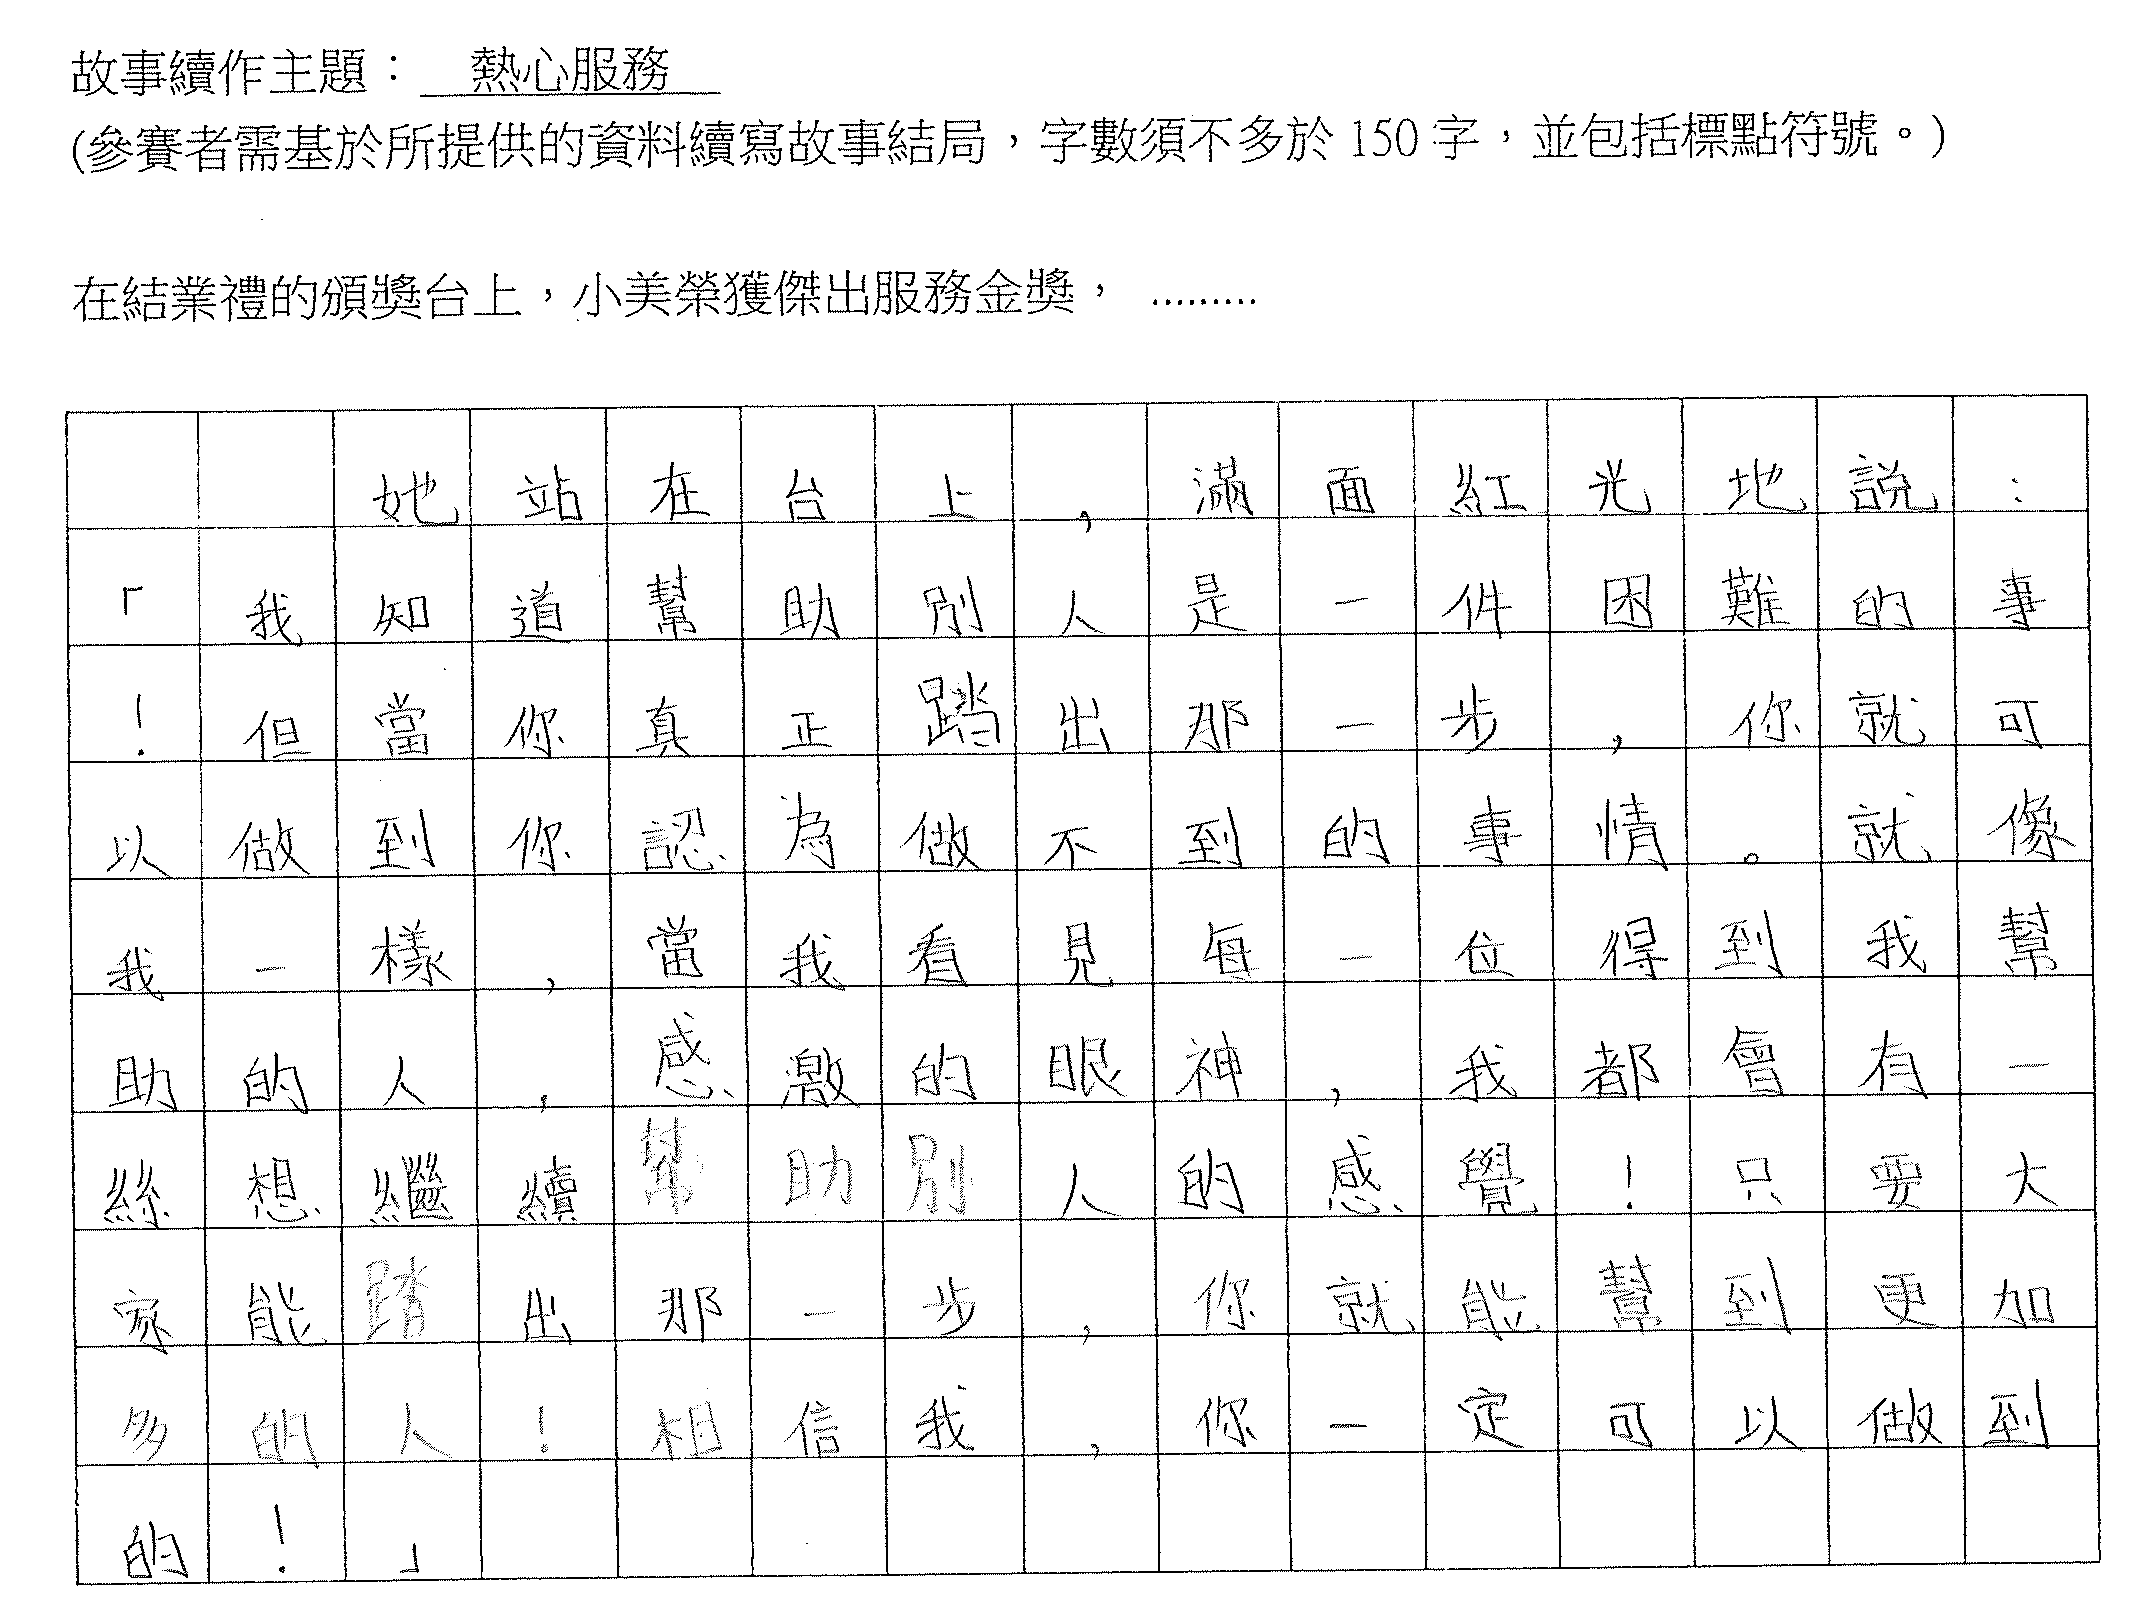 故事續作主題：　熱心服務
(參賽者需基於所提供的資料續寫故事結局，字數須不多於 150 字，並包括標點符號。)
在結業禮的頒獎台上，小美榮獲傑出服務金獎， .........
她站在台上，滿面紅光地說：
「我知道幫助別人是一件困難的事
！但當你真正踏出那一步，你就可
以做到你認為做不到的事情。就像
我一樣，當我看見每一位得到我幫
助的人，感激的眼神，我都會有一
絲想繼續幫助別人的感覺！只要大
家能踏出那一步，你就能幫到更加
多的人！相信我，你一定可以做到
的！」